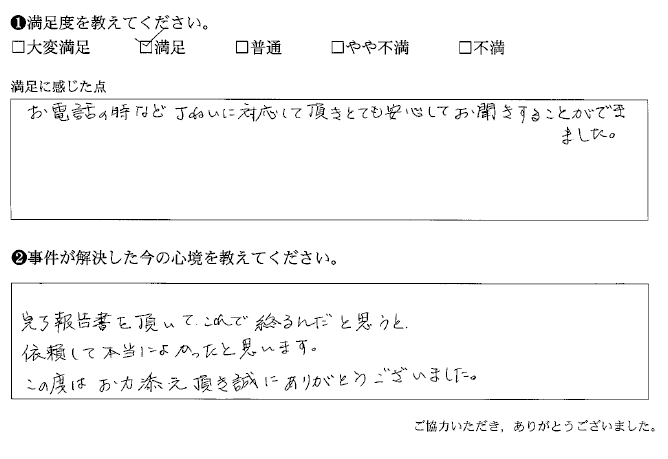 ❶満足度を教えてください。
□大変満足 ☑満足 □普通 □やや不満 □不満
満足に感じた点
お電話の時など丁ねいに対応して頂きとても安心してお聞きすることができ
ました。
❷事件が解決した今の心境を教えてください。
完了報告書を頂いて、これで終るんだと思うと、
依頼して本当によかったと思います。
この度はお力添え頂き誠にありがとうございました。
ご協力いただき，ありがとうございました。